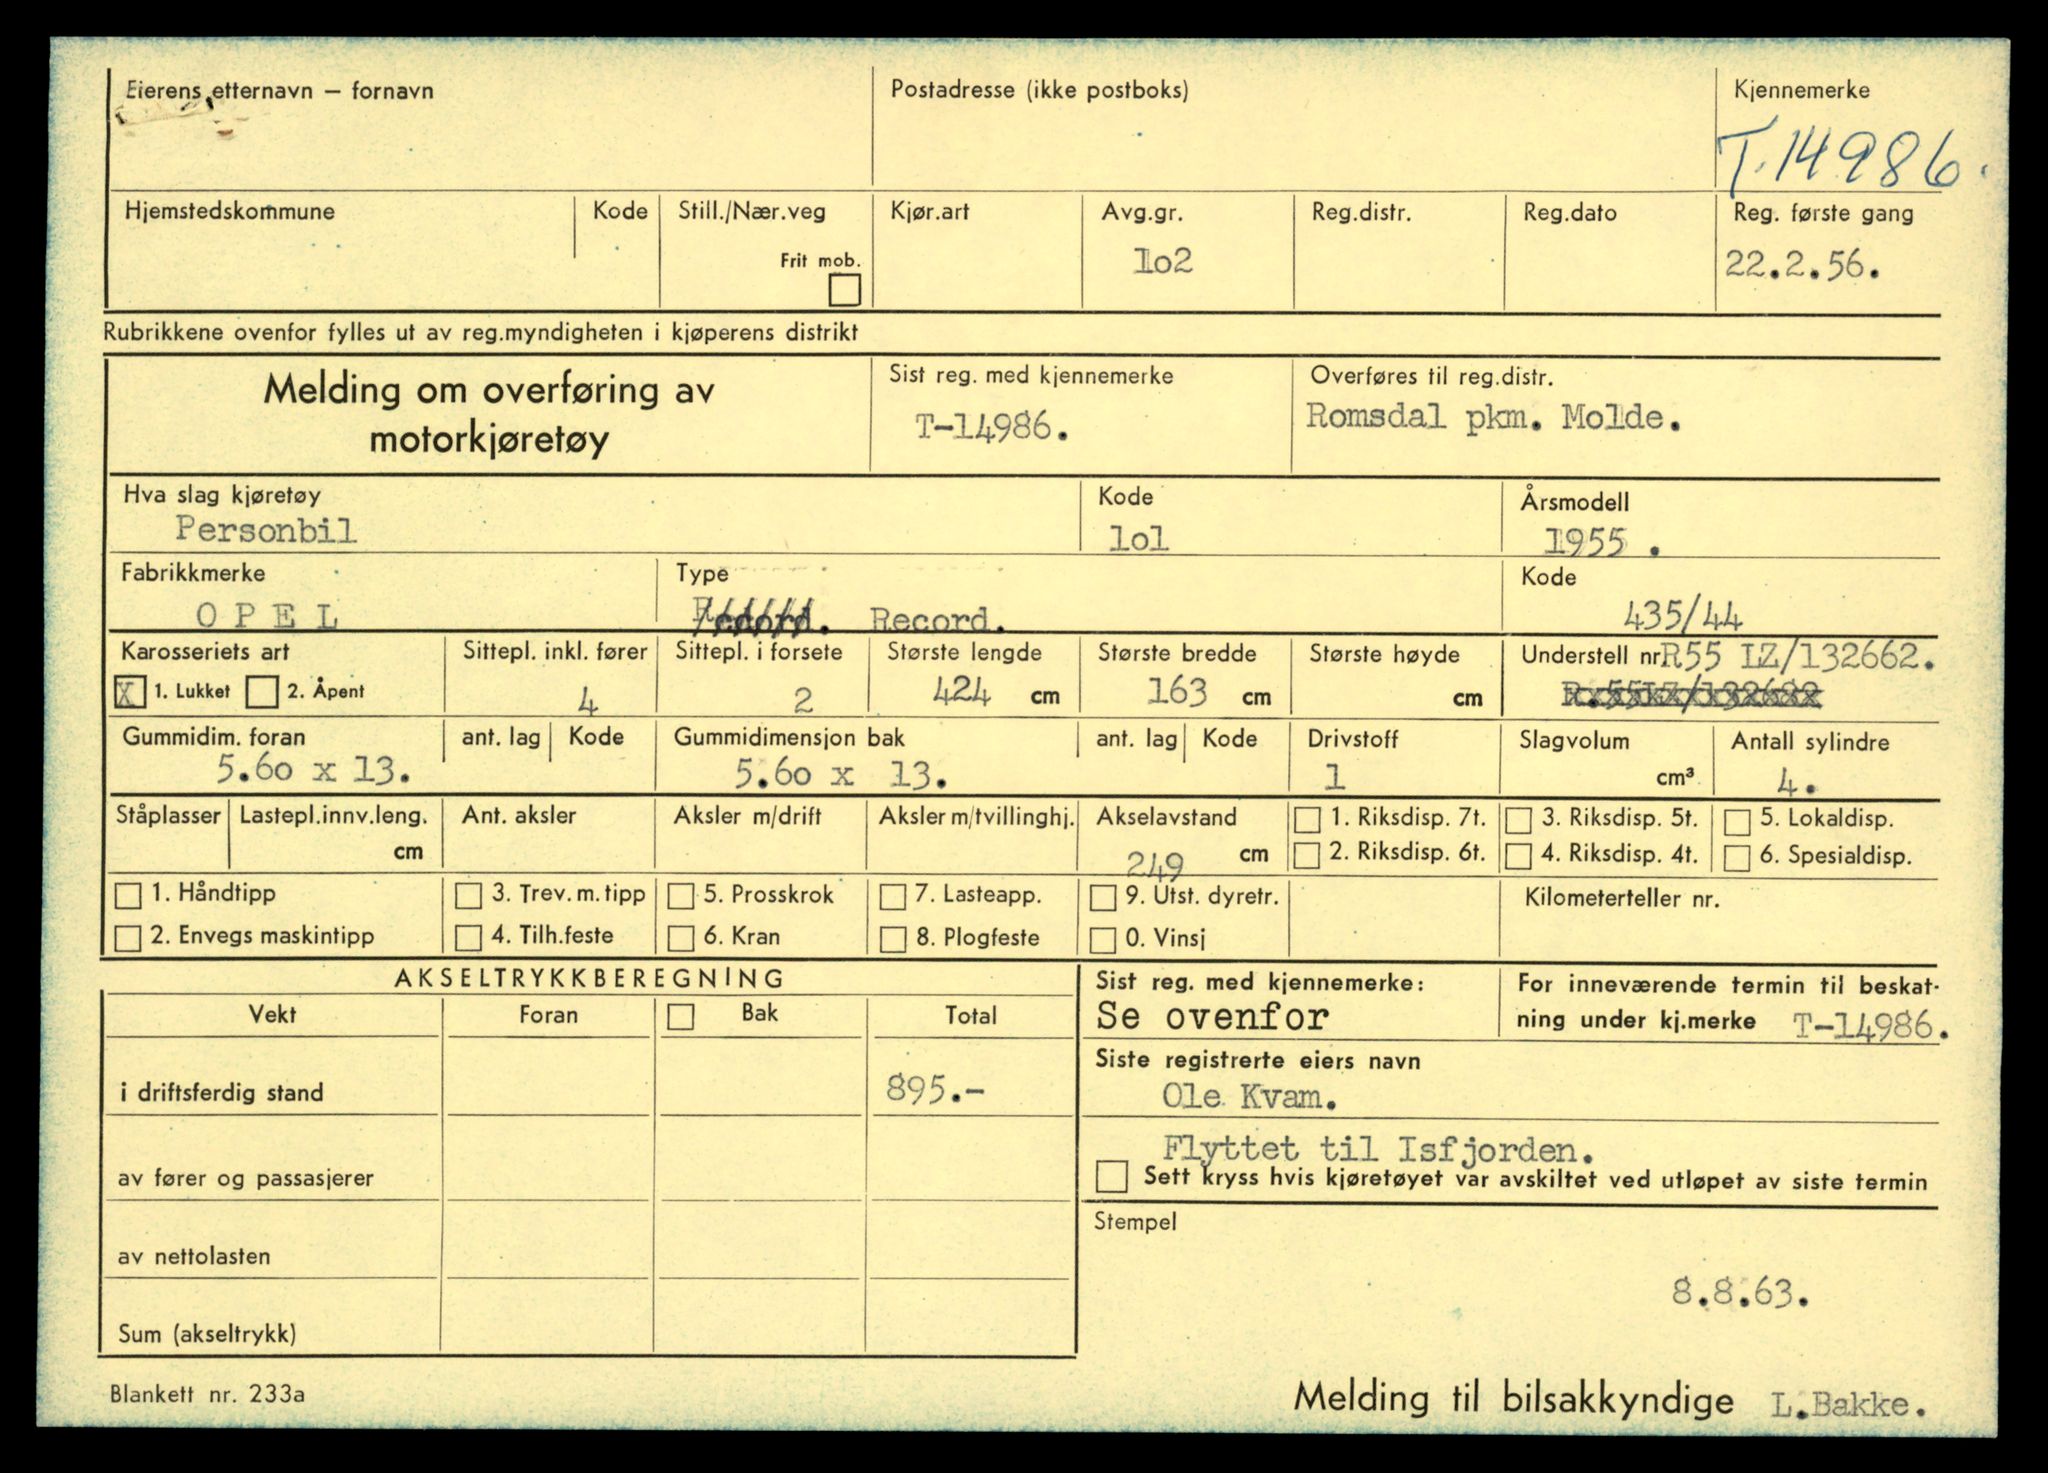 Eierens etternavn – fornavn
Postadresse (ikke postboks)
Kjennemerke
T.14986.
Hjemstedskommune
Kode
Still./Nær.veg
Frit mob.
Kjør.art
Avg.gr.
1o2
Reg.distr.
Reg.dato
Reg. første gang
22.2.56.
Rubrikkene ovenfor fylles ut av reg.myndigheten i kjøperens distrikt
Melding om overføring av
motorkjøretøy
Sist reg. med kjennemerke
T-14986.
Overføres til reg.distr.
Romsdal pkm. Molde.
Hva slag kjøretøy
Personbil
Kode
1o1
Årsmodell
1955 .
Fabrikkmerke
O P E L
Type
Record.
Kode
435/44
Karosseriets art
X 1. Lukket 2. Åpent
Sittepl. inkl. fører
4
Sittepl. i forsete
2
Største lengde
424 cm
Største bredde
163 cm
Største høyde
cm
Understell nr R55 IZ/132662.
Gummidim. foran
5.6o x 13.
ant. lag Kode
Gummidimensjon bak
5.6o x 13.
ant. lag Kode
Drivstoff
1
Slagvolum
cm³
Antall sylindre
4.
Ståplasser
Lastepl.innv.leng.
cm
Ant. aksler
Aksler m/drift
Aksler m/tvillinghj.
Akselavstand
249 cm
1. Riksdisp. 7t.
2. Riksdisp. 6t.
3. Riksdisp. 5t.
4. Riksdisp. 4t.
5. Lokaldisp.
6. Spesialdisp.
1. Håndtipp
2. Envegs maskintipp
3. Trev. m. tipp
4. Tilh.feste
5. Prosskrok
6. Kran
7. Lasteapp.
8. Plogfeste
9. Utst. dyretr.
0. Vinsj
Kilometerteller nr.
AKSELTRYKKBEREGNING
Vekt Foran Bak Total
i driftsferdig stand 895.-
av fører og passasjerer
av nettolasten
Sum (akseltrykk)
Sist reg. med kjennemerke:
Se ovenfor
For inneværende termin til beskat-
ning under kj.merke T-14986.
Siste registrerte eiers navn
Ole Kvam.
Flyttet til Isfjorden.
Sett kryss hvis kjøretøyet var avskiltet ved utløpet av siste termin
Stempel
8.8.63.
Blankett nr. 233a
Melding til bilsakkyndige L.Bakke.